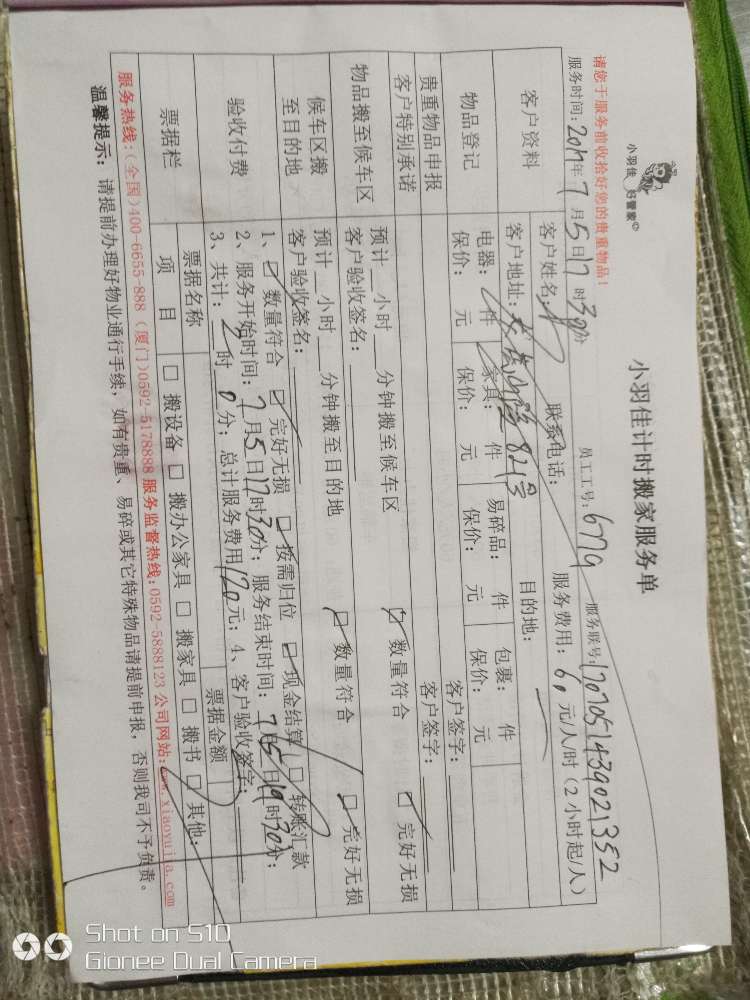 小羽佳
好管家
小羽佳计时搬家服务单
请您于服务前收拾好您的贵重物品!
员工工号: 6779 服务联号: 1707051439021352
服务时间: 2017年7月5日17时30分 服务费用: 60元/人/时(2小时起/人)
客户资料 客户姓名: 联系电话:
客户地址: 821号 目的地:
物品登记 电器: 件 家具: 件 易碎品: 件 包裹: 件
保价: 元 保价: 元 保价: 元 保价: 元
贵重物品申报 客户签字:
客户特别承诺 客户签字:
物品搬至候车区 预计 小时 分钟搬至候车区 ☑数量符合 ☑完好无损
客户验收签名:
候车区搬至目的地 预计 小时 分钟搬至目的地 ☑数量符合 ☑完好无损
客户验收签名:
验收付费 1、☑数量符合 ☑完好无损 ☑按需归位 ☑现金结算 □转账汇款
2、服务开始时间: 7月5日17时30分; 服务结束时间: 7月5日19时30分;
3、共计: 2时0分; 总计服务费用120元; 4、客户验收签字:
票据栏 票据名称 票据金额
项目 □搬设备 □搬办公家具 □搬家具 □搬书 □其他:
服务热线:(全国)400-6655-888 (厦门)0592-5178888 服务监督热线:0592-5888123 公司网站:www.xiaoyujia.com
温馨提示: 请提前办理好物业通行手续, 如有贵重、易碎或其它特殊物品请提前申报, 否则我司不予负责。
Shot on S10
Gionee Dual Camera